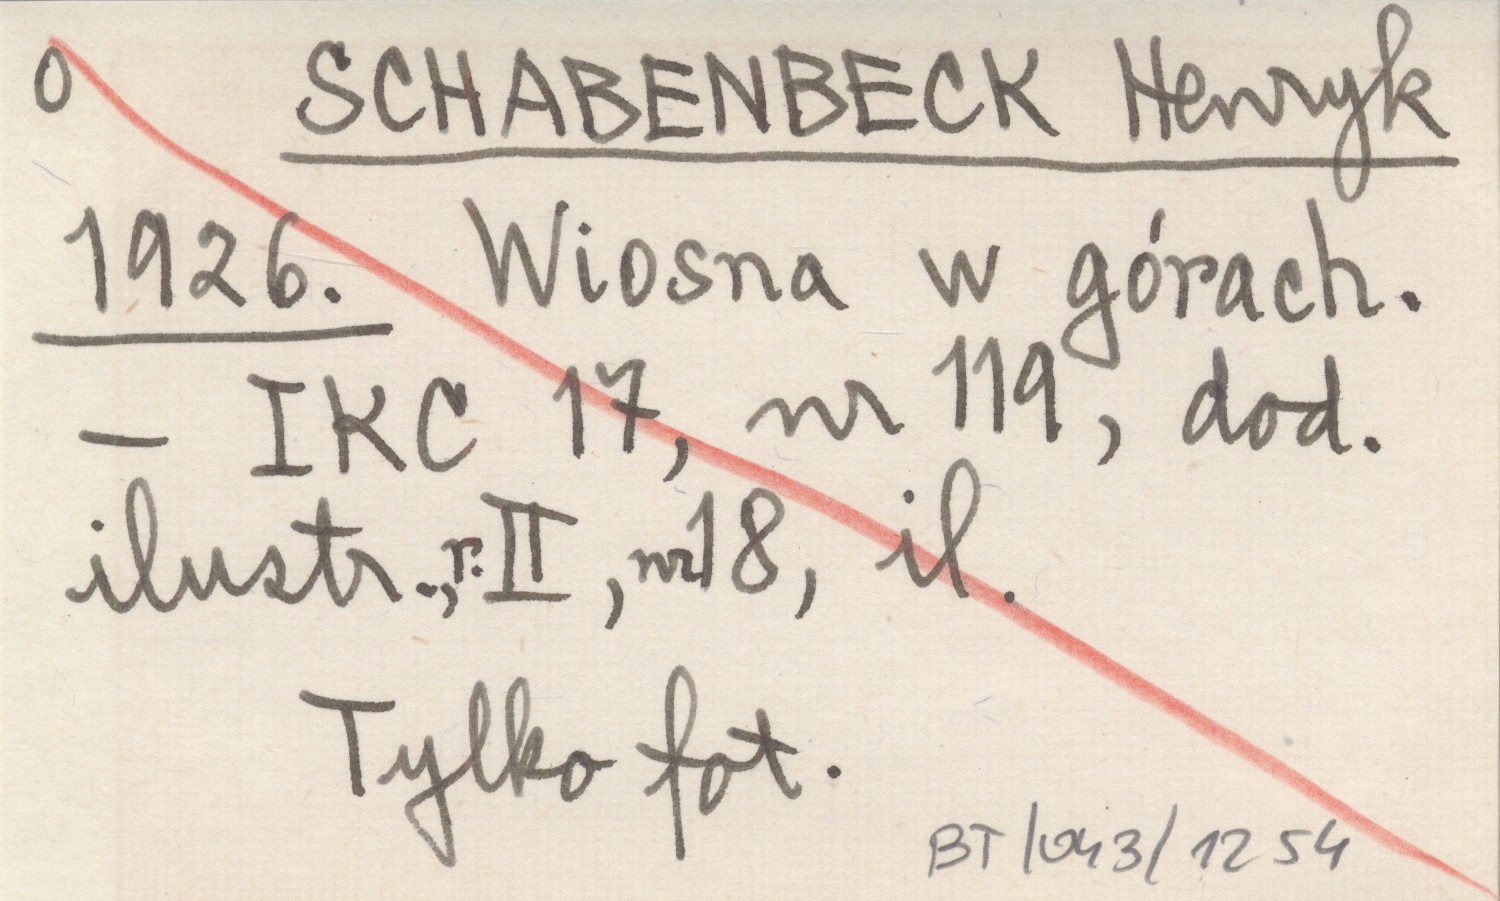 0 SCHABENBECK Henryk
1926. Wiosna w górach.
– IKC 17, nr 119, dod.
ilustr., r. II, nr 18, il.
Tylko fot.
BT/043/1254